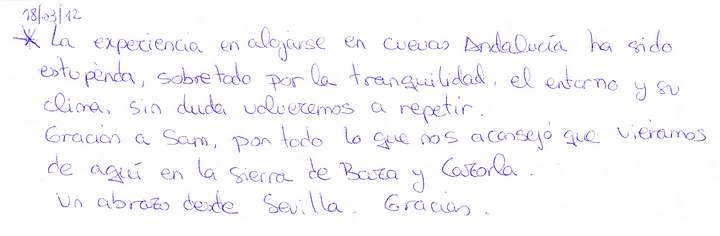 18/03/12
* La experiencia en alojarse en cuevas Andalucía ha sido
estupenda, sobretodo por la tranquilidad, el entorno y su
clima, sin duda volveremos a repetir.
Gracias a Sam, por todo lo que nos aconsejó que vieramos
de aquí en la sierra de Baza y Cazorla.
Un abrazo desde Sevilla. Gracias.